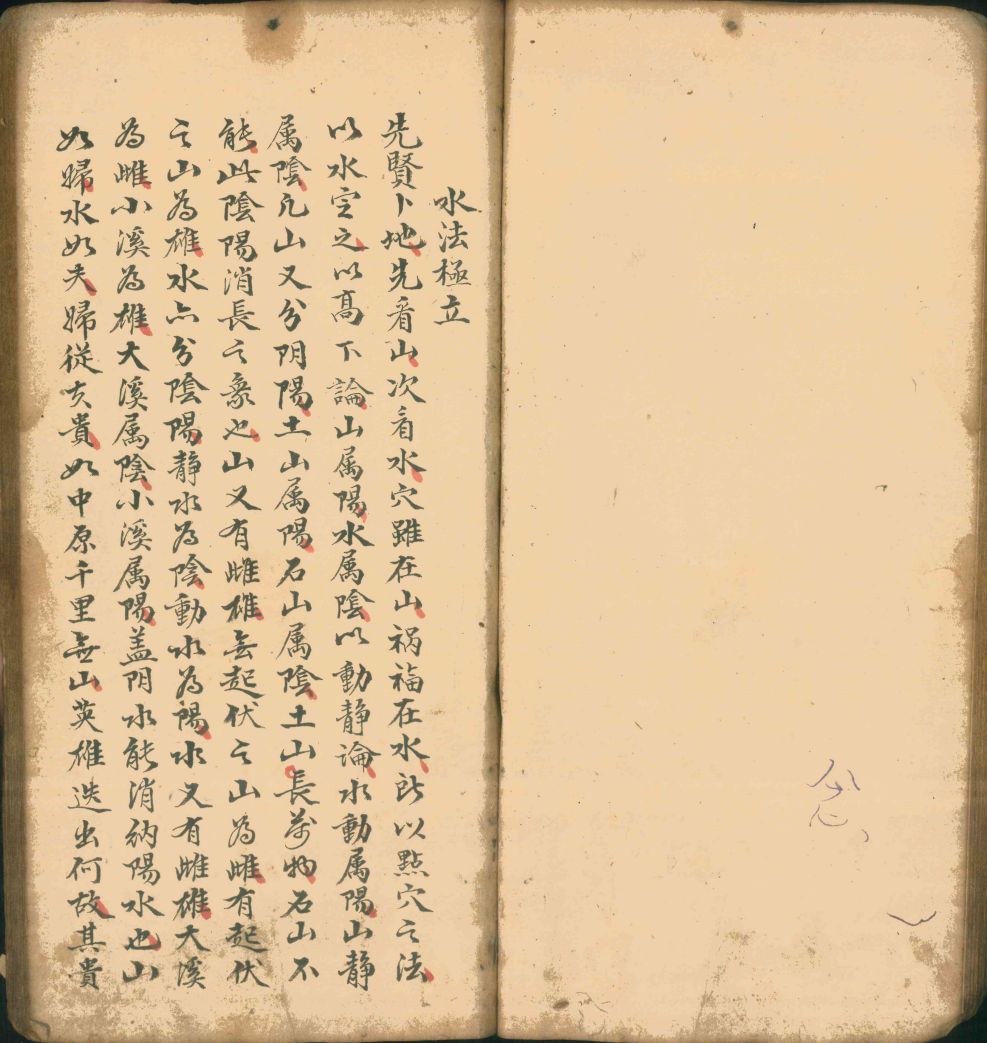 水法極立
先賢卜地先看山次看水穴雖在山祸福在水所以點穴之法
以水定之以高下論山属陽水属陰以動静論水動属陽山静
属陰凢山又分阴陽土山属陽石山属陰土山長萬物石山不
能此陰陽消長之象也山又有雌雄無起伏之山為雌有起伏
之山為雄水亦分陰陽静水為陰動水為陽水又有雌雄大溪
為雌小溪為雄大溪属陰小溪属陽盖阴水能消納陽水也山
如婦水如夫婦従夫貴如中原千里無山英雄迭出何故其貴